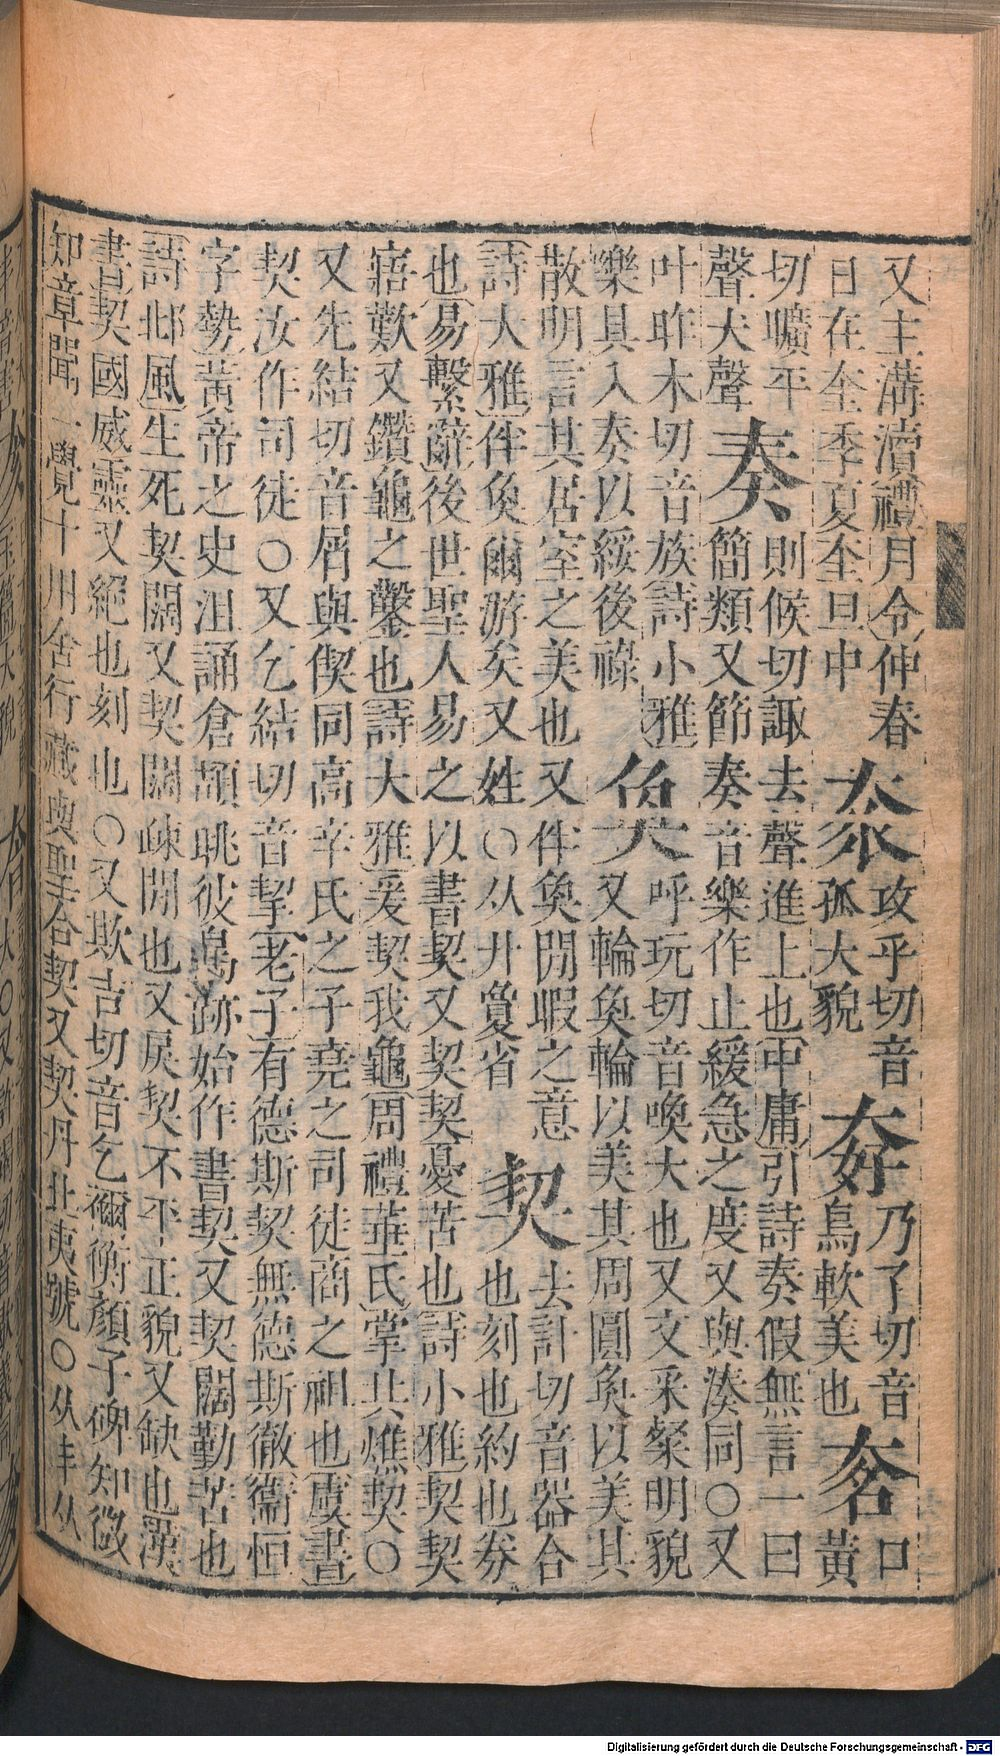 又主溝瀆禮月令仲春　𡘾攻乎切音　㚪乃了切音　㚙口
日在奎季夏奎旦中　孤大貌　鳥軟美也　黃
切曠平　則候切諏去聲進上也中庸引詩奏假無言一曰
聲大聲　奏簡類又節奏音樂作止緩急之度又與湊同○又
叶昨木切音族詩小雅　呼玩切音喚大也又文采粲明貌
樂具入奏以綏後祿　奐又輪奐輪以美其周圓奐以美其
散明言其居室之美也又伴奐閒暇之意　去計切音器合
詩大雅伴奐爾游矣又姓○从廾敻省　契也刻也約也券
也易繫辭後世聖人易之以書契又契契憂苦也詩小雅契契
寤歎又鑽龜之鑿也詩大雅爰契我龜周禮菙氏掌共燋契○
又先結切音屑與偰同高辛氏之子堯之司徒商之祖也虞書
契汝作司徒○又乞結切音挈老子有德斯契無德斯徹衞恒
字勢黃帝之史沮誦倉頡眺彼鳥跡始作書契又契闊勤苦也
詩邶風生死契闊又契闊疎閒也又戾契不平正貌又缺也漢
書契國威靈又絕也刻也○又欺吉切音乞禰衡顏子碑知微
知章聞一覺十用舍行藏與聖合契又契丹北夷號○从丯从
Digitalisierung gefördert durch die Deutsche Forschungsgemeinschaft - DFG